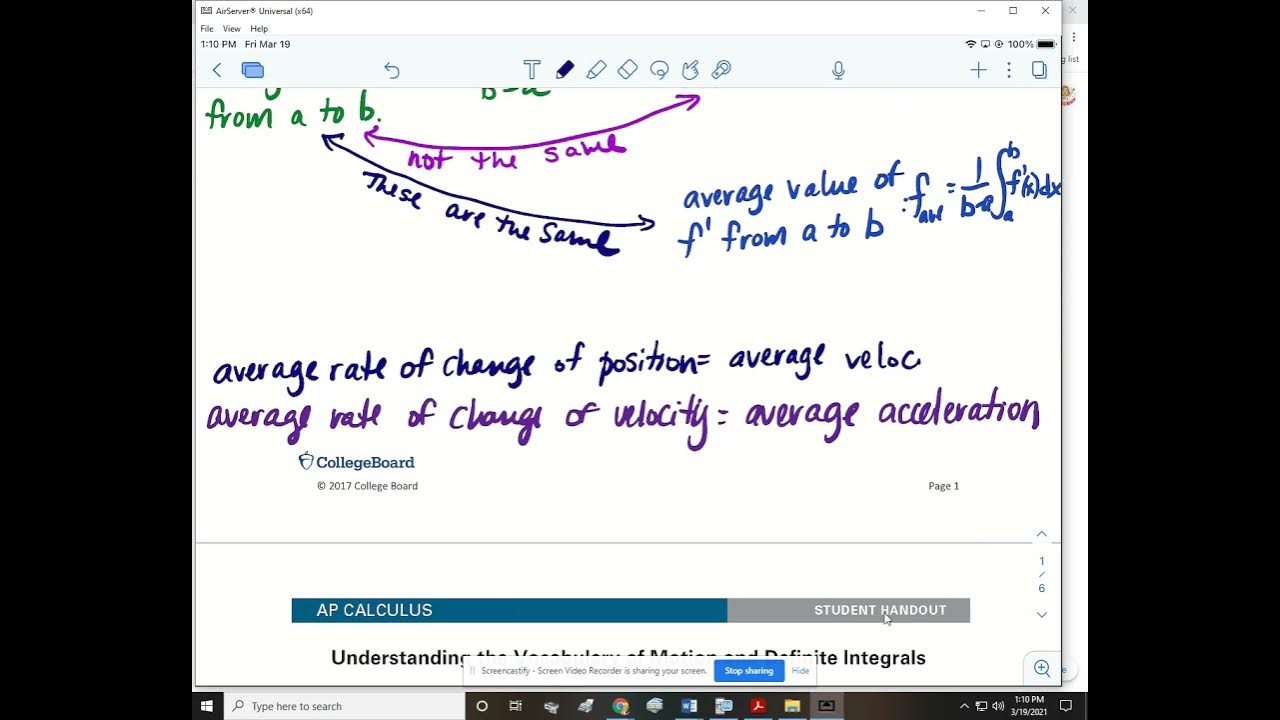 AirServer® Universal (x64)
File View Help
1:10 PM Fri Mar 19
100%
g list
b-a
from a to b.
not the same
These are the same
average value of
f' from a to b
: f ave = 1/b-a ∫ a b f'(x)dx
average rate of change of position= average veloc
average rate of change of velocity= average acceleration
CollegeBoard
© 2017 College Board
Page 1
1
/
6
AP CALCULUS
STUDENT HANDOUT
Understanding the Vocabulary of Motion and Definite Integrals
Screencastify - Screen Video Recorder is sharing your screen.
Stop sharing
Hide
Type here to search
1:10 PM
3/19/2021